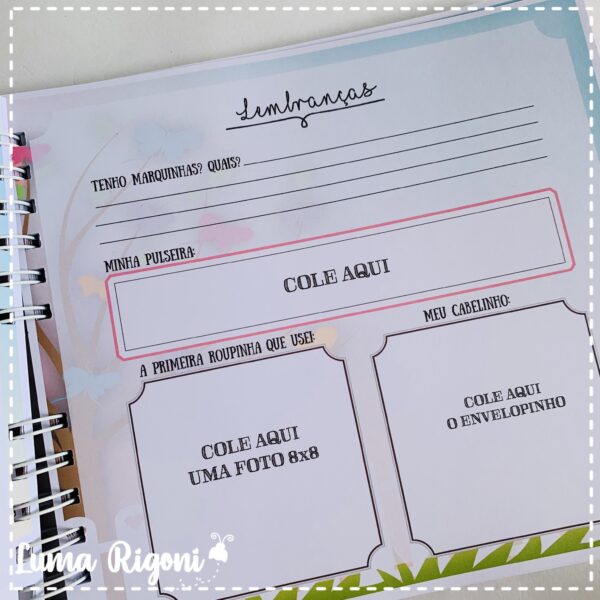 Lembranças
TENHO MARQUINHAS? QUAIS?
MINHA PULSEIRA:
COLE AQUI
A PRIMEIRA ROUPINHA QUE USEI:
MEU CABELINHO:
COLE AQUI
UMA FOTO 8x8
COLE AQUI
O ENVELOPINHO
Luma Rigoni